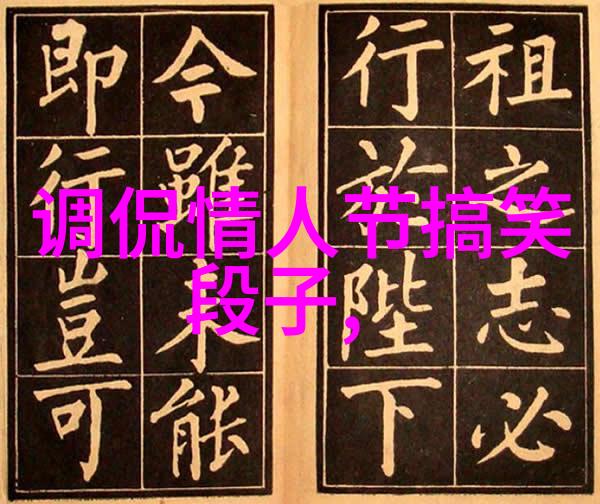 调侃情人节搞笑
段子,
祖之志必
行於陛下
今雖未能
即行豈可